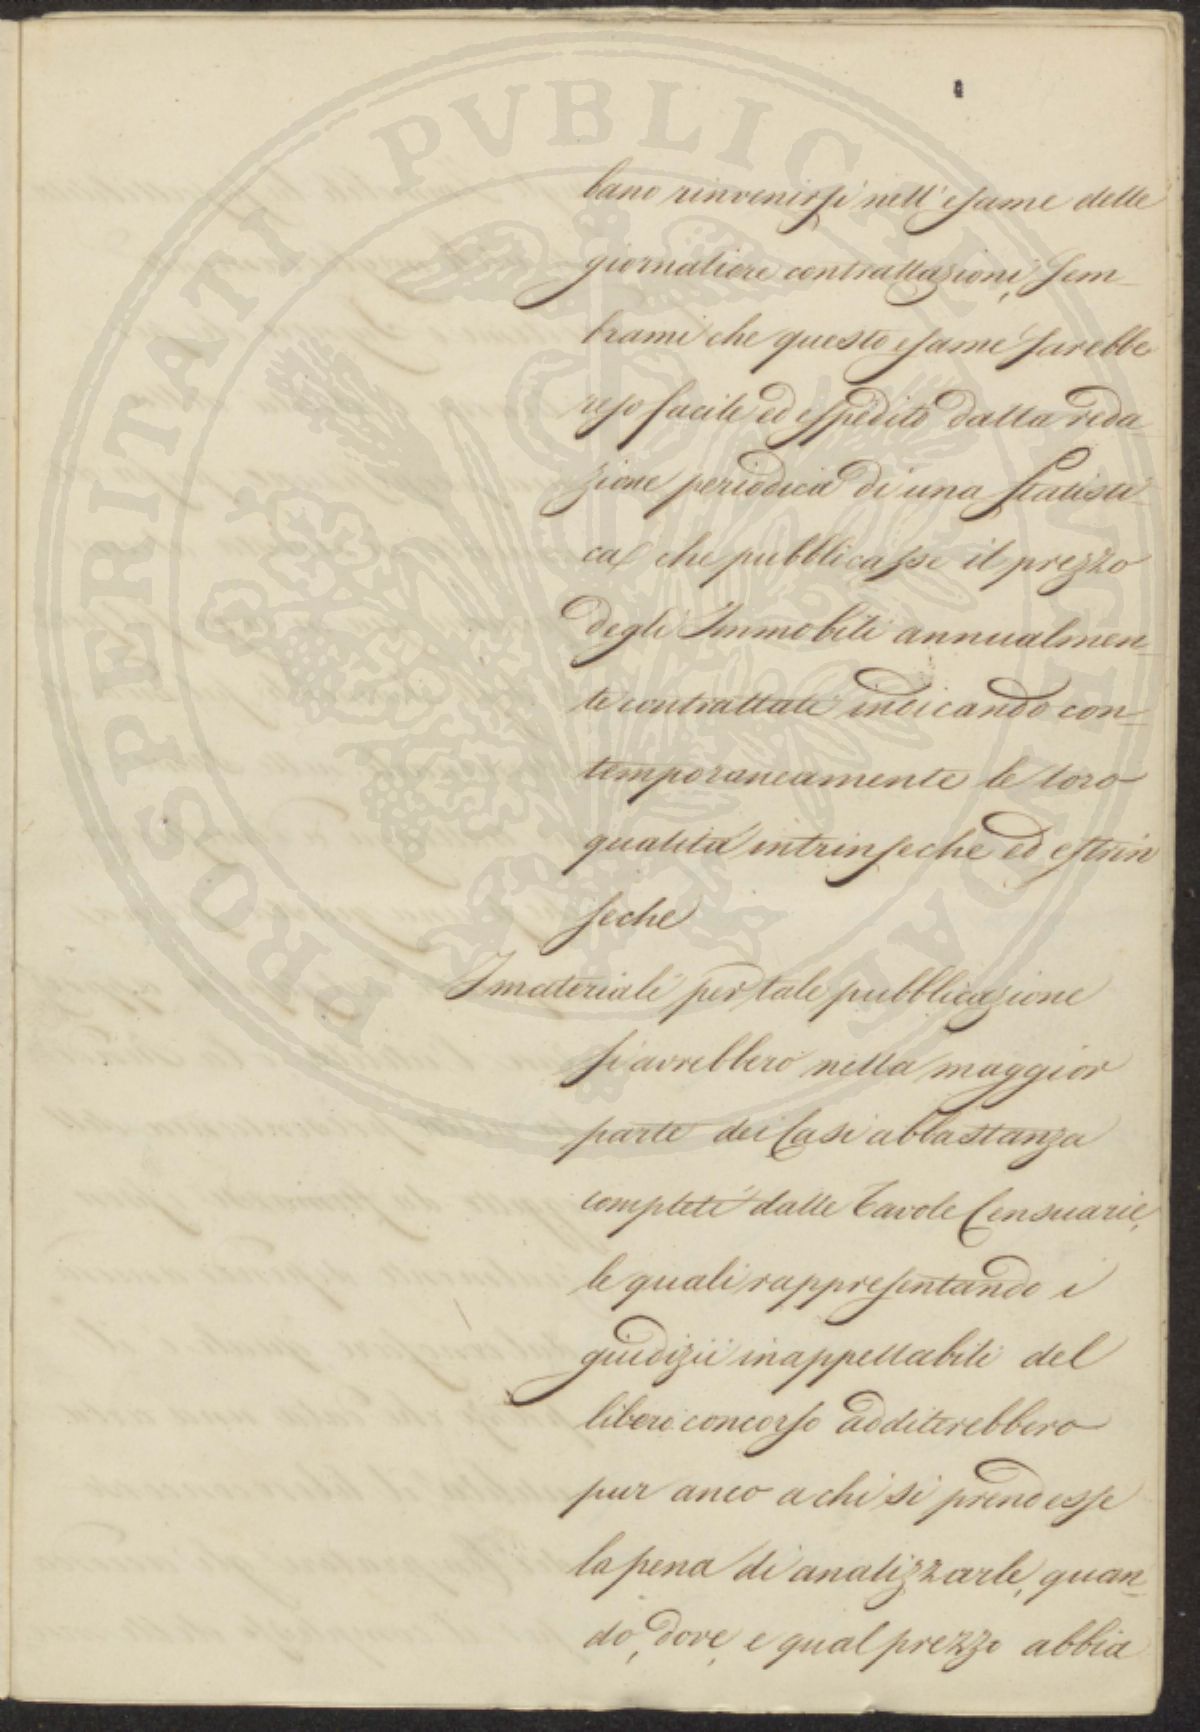 PROSPERITATI PVBLICAE AVGENDAE
bano rinvenirsi nell'esame delle
giornaliere contrattazioni, Sem-
brami che questo esame sarebbe
reso facile ed espedito dalla reda
zione periodica di una Statisti-
ca che pubblicasse il prezzo
degli Immobili annualmen-
te contrattati indicando con-
temporaneamente le loro
qualità intrinseche ed estrin
seche
I materiali per tale pubblicazione
si avrebbero nella maggior
parte dei Casi abbastanza
completi dalle Tavole Censuarie,
le quali rappresentando i
giudizii inappellabili del
libero concorso additerebbero
pur anco a chi si prendesse
la pena di analizzarle, quan-
do, dove, e qual prezzo abbia